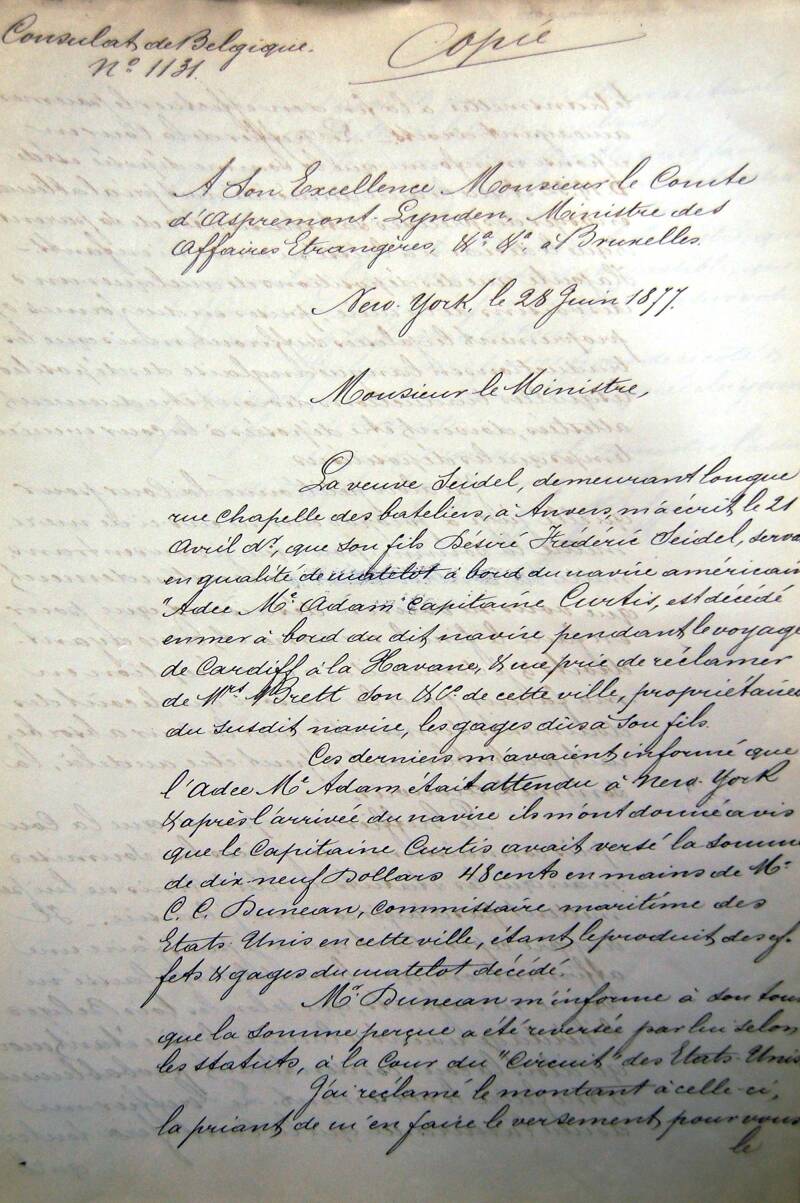 Consulat de Belgique.
Nº 1131.
Copie
A Son Excellence Monsieur le Comte
d'Aspremont-Lynden, Ministre des
Affaires Etrangères, &ª &ª à Bruxelles.
New-York, le 28 Juin 1877.
Monsieur le Ministre,
La veuve Seidel, demeurant longue
rue chapelle des bateliers, à Anvers, m'a écrit le 21
Avril dr, que son fils Désiré Frédéric Seidel, serva
en qualité de matelot à bord du navire américain
"Adee Mc Adam" Capitaine Curtis, est décédé
en mer à bord du dit navire pendant le voyage
de Cardiff à la Havane, & me prie de réclamer
de Mrs Brett Son & Co. de cette ville, propriétaires
du susdit navire, les gages dûs à son fils.
Ces derniers m'avaient informé que
l'Adee Mc Adam était attendu à New-York
& après l'arrivée du navire ils m'ont donné avis
que le Capitaine Curtis avait versé la somme
de dix-neuf Dollars 48 cents en mains de Mr
C. C. Duncan, commissaire maritime des
Etats-Unis en cette ville, étant le produit des ef-
fets & gages du matelot décédé.
Mr Duncan m'informe à son tour
que la somme perçue a été reversée par lui selon
les statuts, à la Cour du "Circuit" des Etats-Unis
J'ai réclamé le montant à celle-ci,
la priant de m'en faire le versement pour vous
le